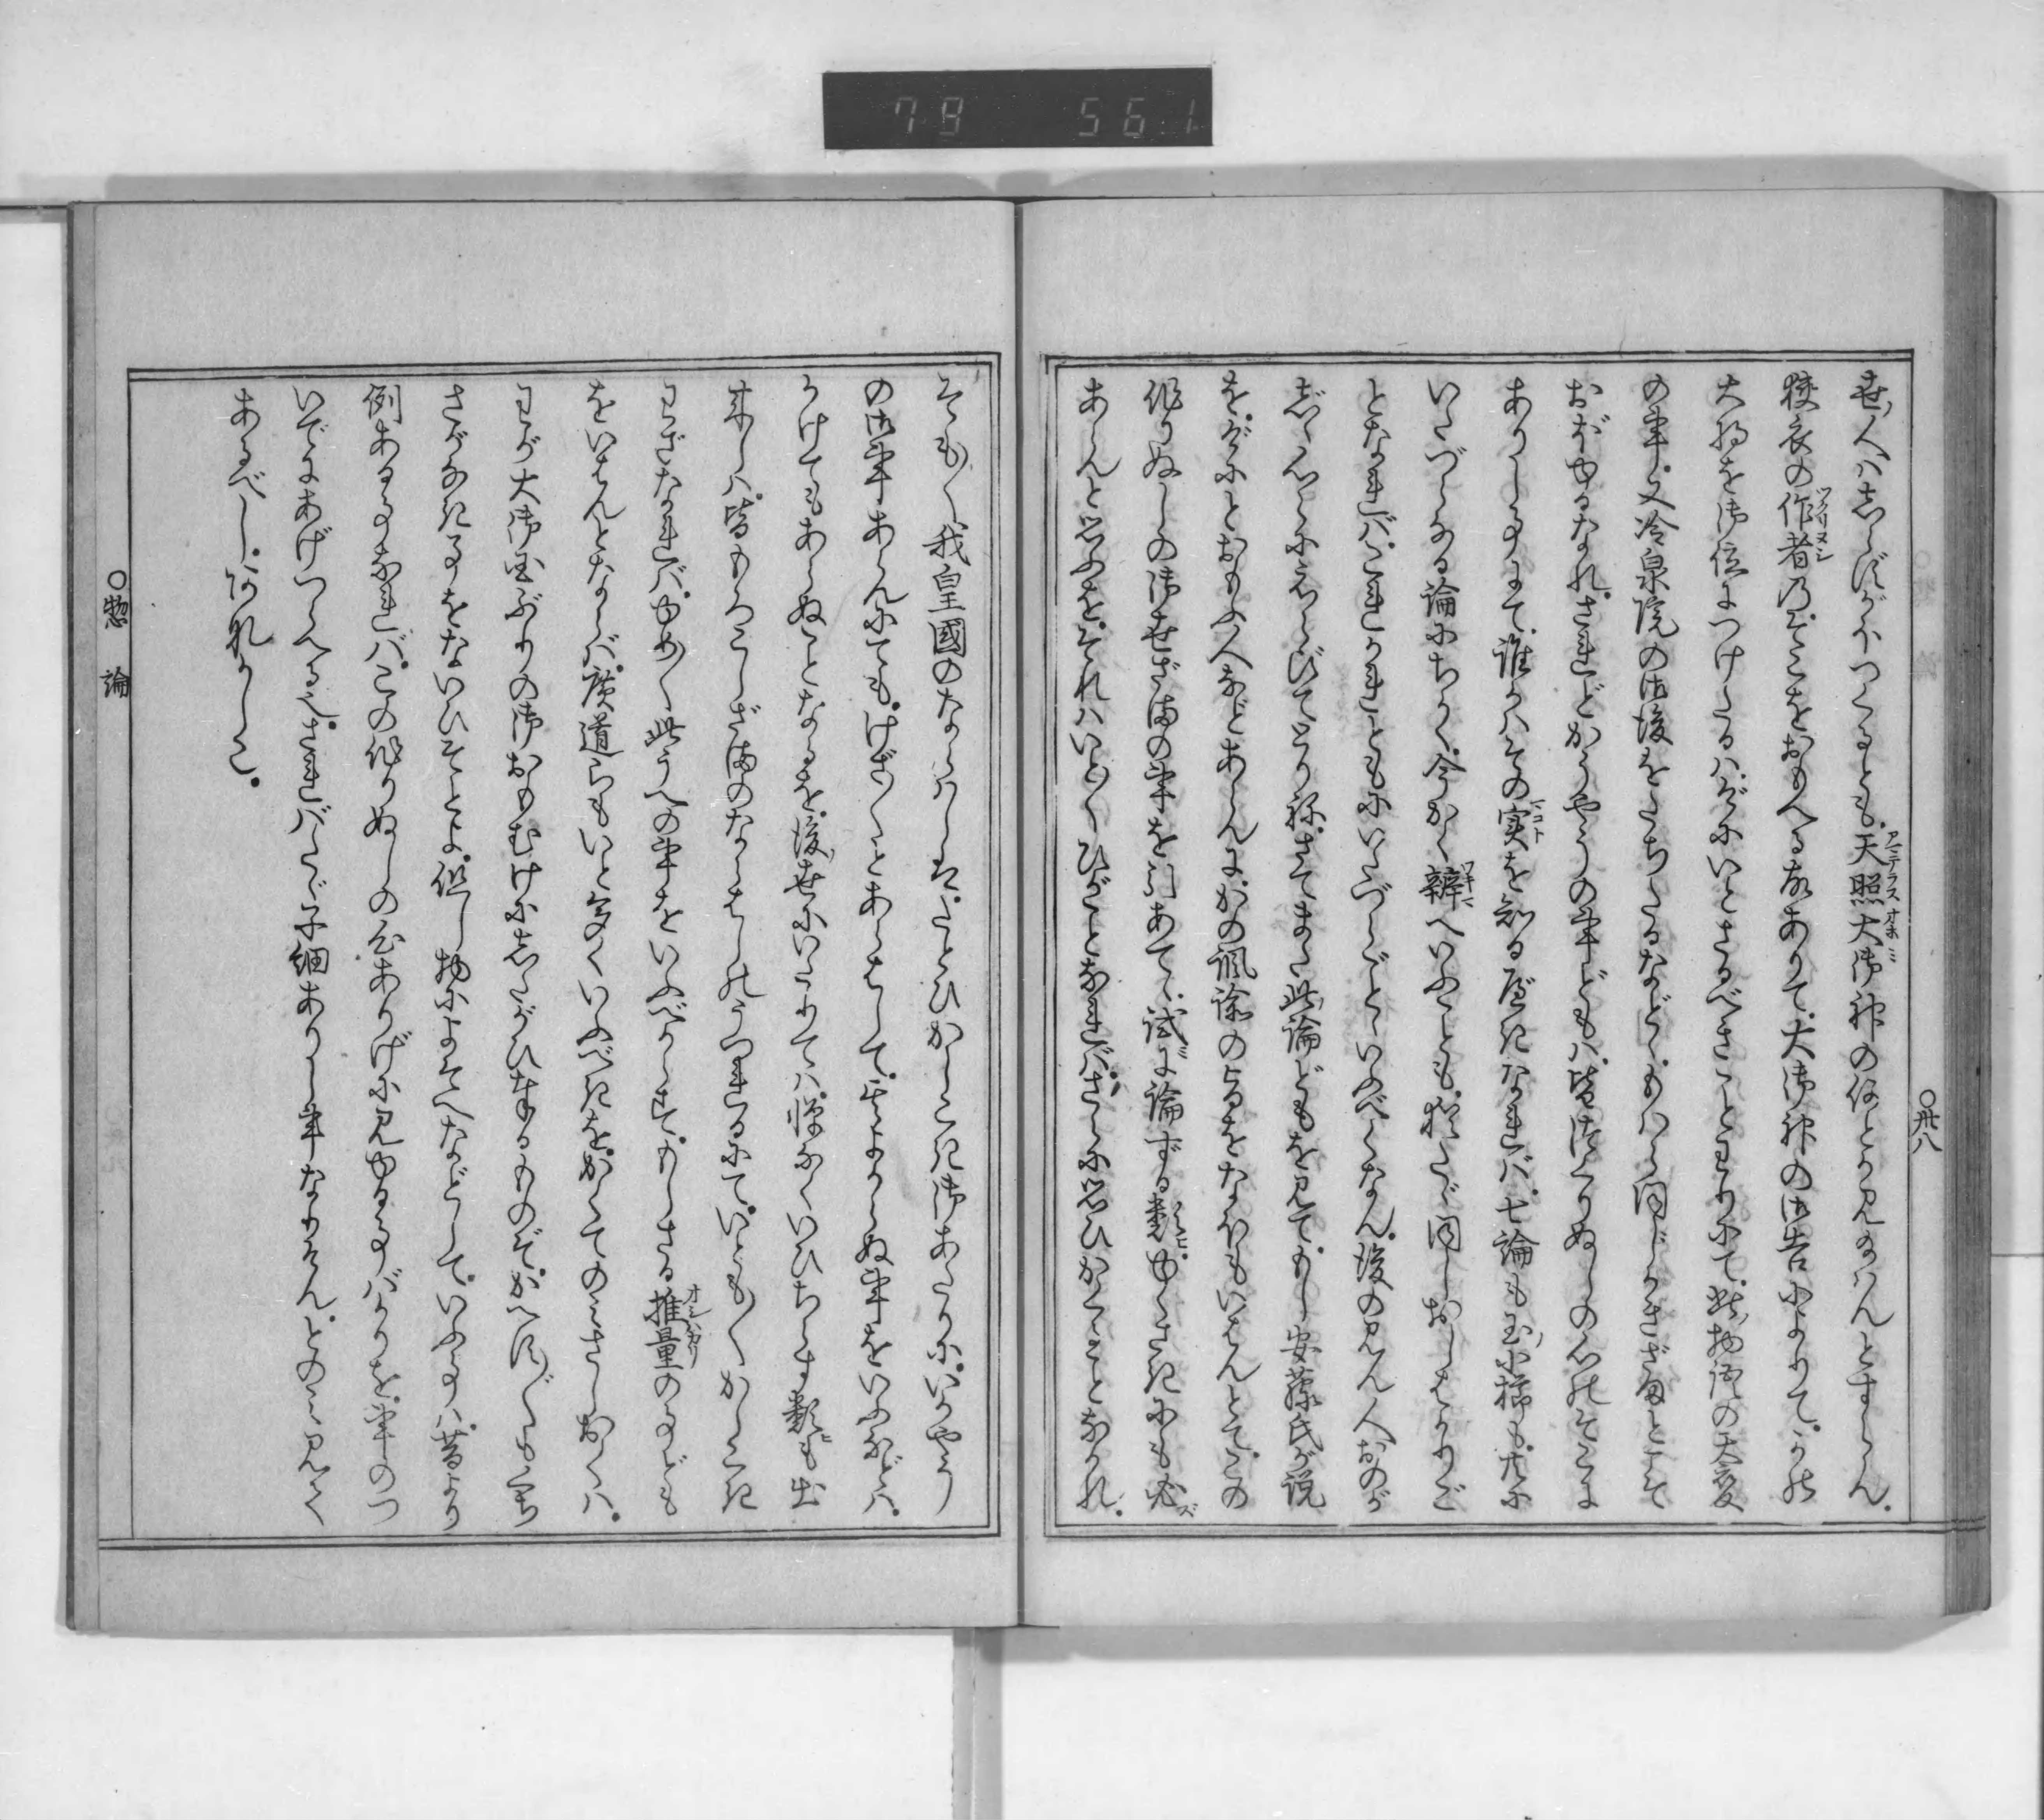 79 561
世ノ人ハしらずがほつくるとも。天照大御神の何とか見給はんとすらん。
狭衣の作者の。そこをおもへる故ありて。大御神の御告によりて。かの
大将を御位につけたるハ。げにいとさるべきことわりにて。此物語の大変
の事。又冷泉院の御後をたちたるなど。もハら同じかきざまとこそ
おぼゆるなれ。されどかうやうの事どもハ。皆つくりぬしの心のそこに
ありし事にて。誰かハその実を知る べきなれバ。七論も玉ノ小櫛も。共に
いたづらなる論にちかく。今かく辨へいふことも。猶たゞ同じおしはかりご
となれバ。これかれともにいたづらごとゝいふべくなん。後の見ん人おのが
心々にえらびてとりね。さてまた此論どもを見て。もし安藤氏が説
を。げにとおもふ人などあらんに。かの諷諭の旨をたすけもいはんとて。この
作りぬしの御世ざまの事を引あて。試に論ずる類。ゆくさきにも必ズ
あらんと思ふを。それハいと〳〵ひがことなれバ。さらに思ひかくることなかれ。
○卅八
そも〳〵我皇國のならハしは。たとひかしこき御あたりに。いかやう
の御事あらんにても。けざ〳〵とあらはして。其よからぬ事をいふなどハ。
かけてもあらぬことなるを。後ノ世にいたりてハ。憚なくいひちらす類も出
来しハ。皆もろこしざまのならはしのうつれるにて。いとも〳〵かしこき
わざなれバ。ゆめ〳〵此うへの事をいふべからず。もしさる推量の事ども
をいはんとならバ。廣道らもいと多くいふべきを。かくてのみさしおくハ。
わが大御国ぶりの御おもむけにしたがひ奉るものぞ。かへす〴〵もくち
さがなき事をないひそとよ。但し物によそへなどして。いふ事ハ。昔より
例ある事なれバ。この作りぬしの心ありげに見ゆる事ばかりを。事のつ
いでにあげつらへる也。されバたゞ子細ありし事なりけん。とのみ見て
あるべし。あなかしこ。
○惣論